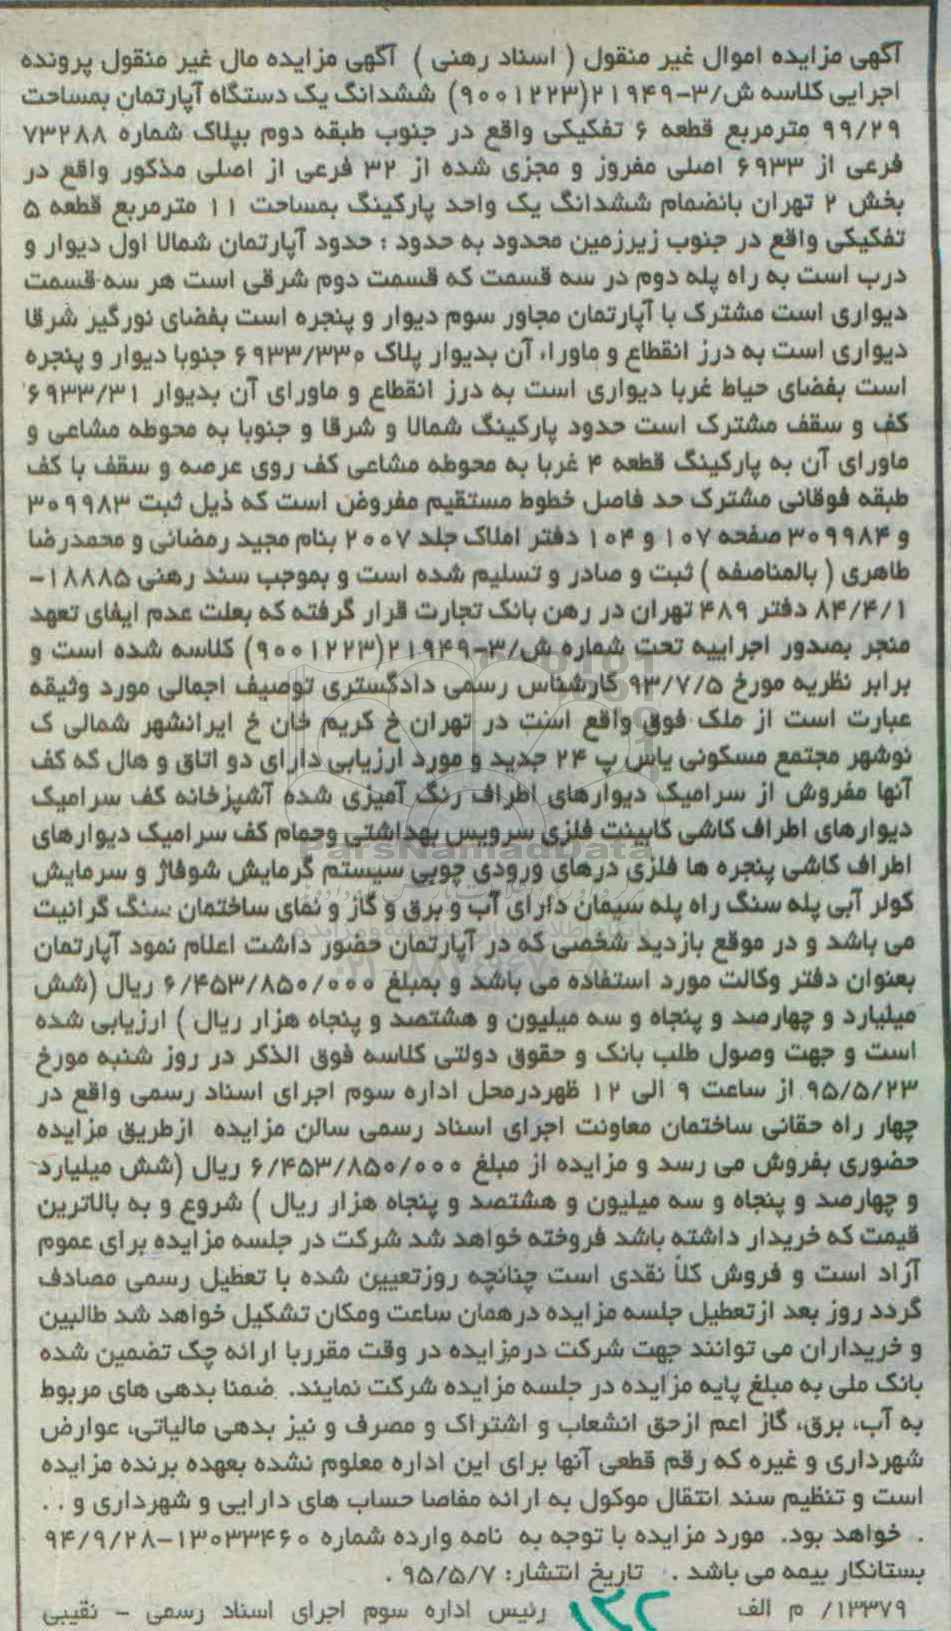 آگهی مزایده اموال غیر منقول ( اسناد رهنی ) آگهی مزایده مال غیر منقول پرونده
اجرایی کلاسه ش/۳-۲۱۹۴۹(۹۰۰۱۲۲۳) ششدانگ یک دستگاه آپارتمان بمساحت
۹۹/۲۹ مترمربع قطعه ۶ تفکیکی واقع در جنوب طبقه دوم بپلاک شماره ۷۳۲۸۸
فرعی از ۶۹۳۳ اصلی مفروز و مجزی شده از ۳۲ فرعی از اصلی مذکور واقع در
بخش ۲ تهران بانضمام ششدانگ یک واحد پارکینگ بمساحت ۱۱ مترمربع قطعه ۵
تفکیکی واقع در جنوب زیرزمین محدود به حدود : حدود آپارتمان شمالا اول دیوار و
درب است به راه پله دوم در سه قسمت که قسمت دوم شرقی است هر سه قسمت
دیواری است مشترک با آپارتمان مجاور سوم دیوار و پنجره است بفضای نورگیر شرقا
دیواری است به درز انقطاع و ماوراء آن بدیوار پلاک ۶۹۳۳/۳۳۰ جنوبا دیوار و پنجره
است بفضای حیاط غربا دیواری است به درز انقطاع و ماورای آن بدیوار ۶۹۳۳/۳۱
کف و سقف مشترک است حدود پارکینگ شمالا و شرقا و جنوبا به محوطه مشاعی و
ماورای آن به پارکینگ قطعه ۴ غربا به محوطه مشاعی کف روی عرصه و سقف با کف
طبقه فوقانی مشترک حد فاصل خطوط مستقیم مفروض است که ذیل ثبت ۳۰۹۹۸۳
و ۳۰۹۹۸۴ صفحه ۱۰۷ و ۱۰۴ دفتر املاک جلد ۲۰۰۷ بنام مجید رمضانی و محمدرضا
طاهری ( بالمناصفه ) ثبت و صادر و تسلیم شده است و بموجب سند رهنی ۱۸۸۸۵-
۸۴/۴/۱ دفتر ۴۸۹ تهران در رهن بانک تجارت قرار گرفته که بعلت عدم ایفای تعهد
منجر بصدور اجراییه تحت شماره ش/۳-۲۱۹۴۹(۹۰۰۱۲۲۳) کلاسه شده است و
برابر نظریه مورخ ۹۳/۷/۵ کارشناس رسمی دادگستری توصیف اجمالی مورد وثیقه
عبارت است از ملک فوق واقع است در تهران خ کریم خان خ ایرانشهر شمالی ک
نوشهر مجتمع مسکونی یاس پ ۲۴ جدید و مورد ارزیابی دارای دو اتاق و هال که کف
آنها مفروش از سرامیک دیوارهای اطراف رنگ آمیزی شده آشپزخانه کف سرامیک
دیوارهای اطراف کاشی کابینت فلزی سرویس بهداشتی وحمام کف سرامیک دیوارهای
اطراف کاشی پنجره ها فلزی درهای ورودی چوبی سیستم گرمایش شوفاژ و سرمایش
کولر آبی پله سنگ راه پله سیمان دارای آب و برق و گاز و نمای ساختمان سنگ گرانیت
می باشد و در موقع بازدید شخصی که در آپارتمان حضور داشت اعلام نمود آپارتمان
بعنوان دفتر وکالت مورد استفاده می باشد و بمبلغ ۶/۴۵۳/۸۵۰/۰۰۰ ریال (شش
میلیارد و چهارصد و پنجاه و سه میلیون و هشتصد و پنجاه هزار ریال ) ارزیابی شده
است و جهت وصول طلب بانک و حقوق دولتی کلاسه فوق الذکر در روز شنبه مورخ
۹۵/۵/۲۳ از ساعت ۹ الی ۱۲ ظهردرمحل اداره سوم اجرای اسناد رسمی واقع در
چهار راه حقانی ساختمان معاونت اجرای اسناد رسمی سالن مزایده ازطریق مزایده
حضوری بفروش می رسد و مزایده از مبلغ ۶/۴۵۳/۸۵۰/۰۰۰ ریال (شش میلیارد
و چهارصد و پنجاه و سه میلیون و هشتصد و پنجاه هزار ریال ) شروع و به بالاترین
قیمت که خریدار داشته باشد فروخته خواهد شد شرکت در جلسه مزایده برای عموم
آزاد است و فروش کلاً نقدی است چنانچه روزتعیین شده با تعطیل رسمی مصادف
گردد روز بعد ازتعطیل جلسه مزایده درهمان ساعت ومکان تشکیل خواهد شد طالبین
و خریداران می توانند جهت شرکت درمزایده در وقت مقرربا ارائه چک تضمین شده
بانک ملی به مبلغ پایه مزایده در جلسه مزایده شرکت نمایند. ضمنا بدهی های مربوط
به آب، برق، گاز اعم ازحق انشعاب و اشتراک و مصرف و نیز بدهی مالیاتی، عوارض
شهرداری و غیره که رقم قطعی آنها برای این اداره معلوم نشده بعهده برنده مزایده
است و تنظیم سند انتقال موکول به ارائه مفاصا حساب های دارایی و شهرداری و . .
. خواهد بود. مورد مزایده با توجه به نامه وارده شماره ۱۳۰۳۳۴۶۰-۹۴/۹/۲۸
بستانکار بیمه می باشد . تاریخ انتشار: ۹۵/۵/۷ .
۱۳۳۷۹/ م الف رئیس اداره سوم اجرای اسناد رسمی - نقیبی
ParsNamadData